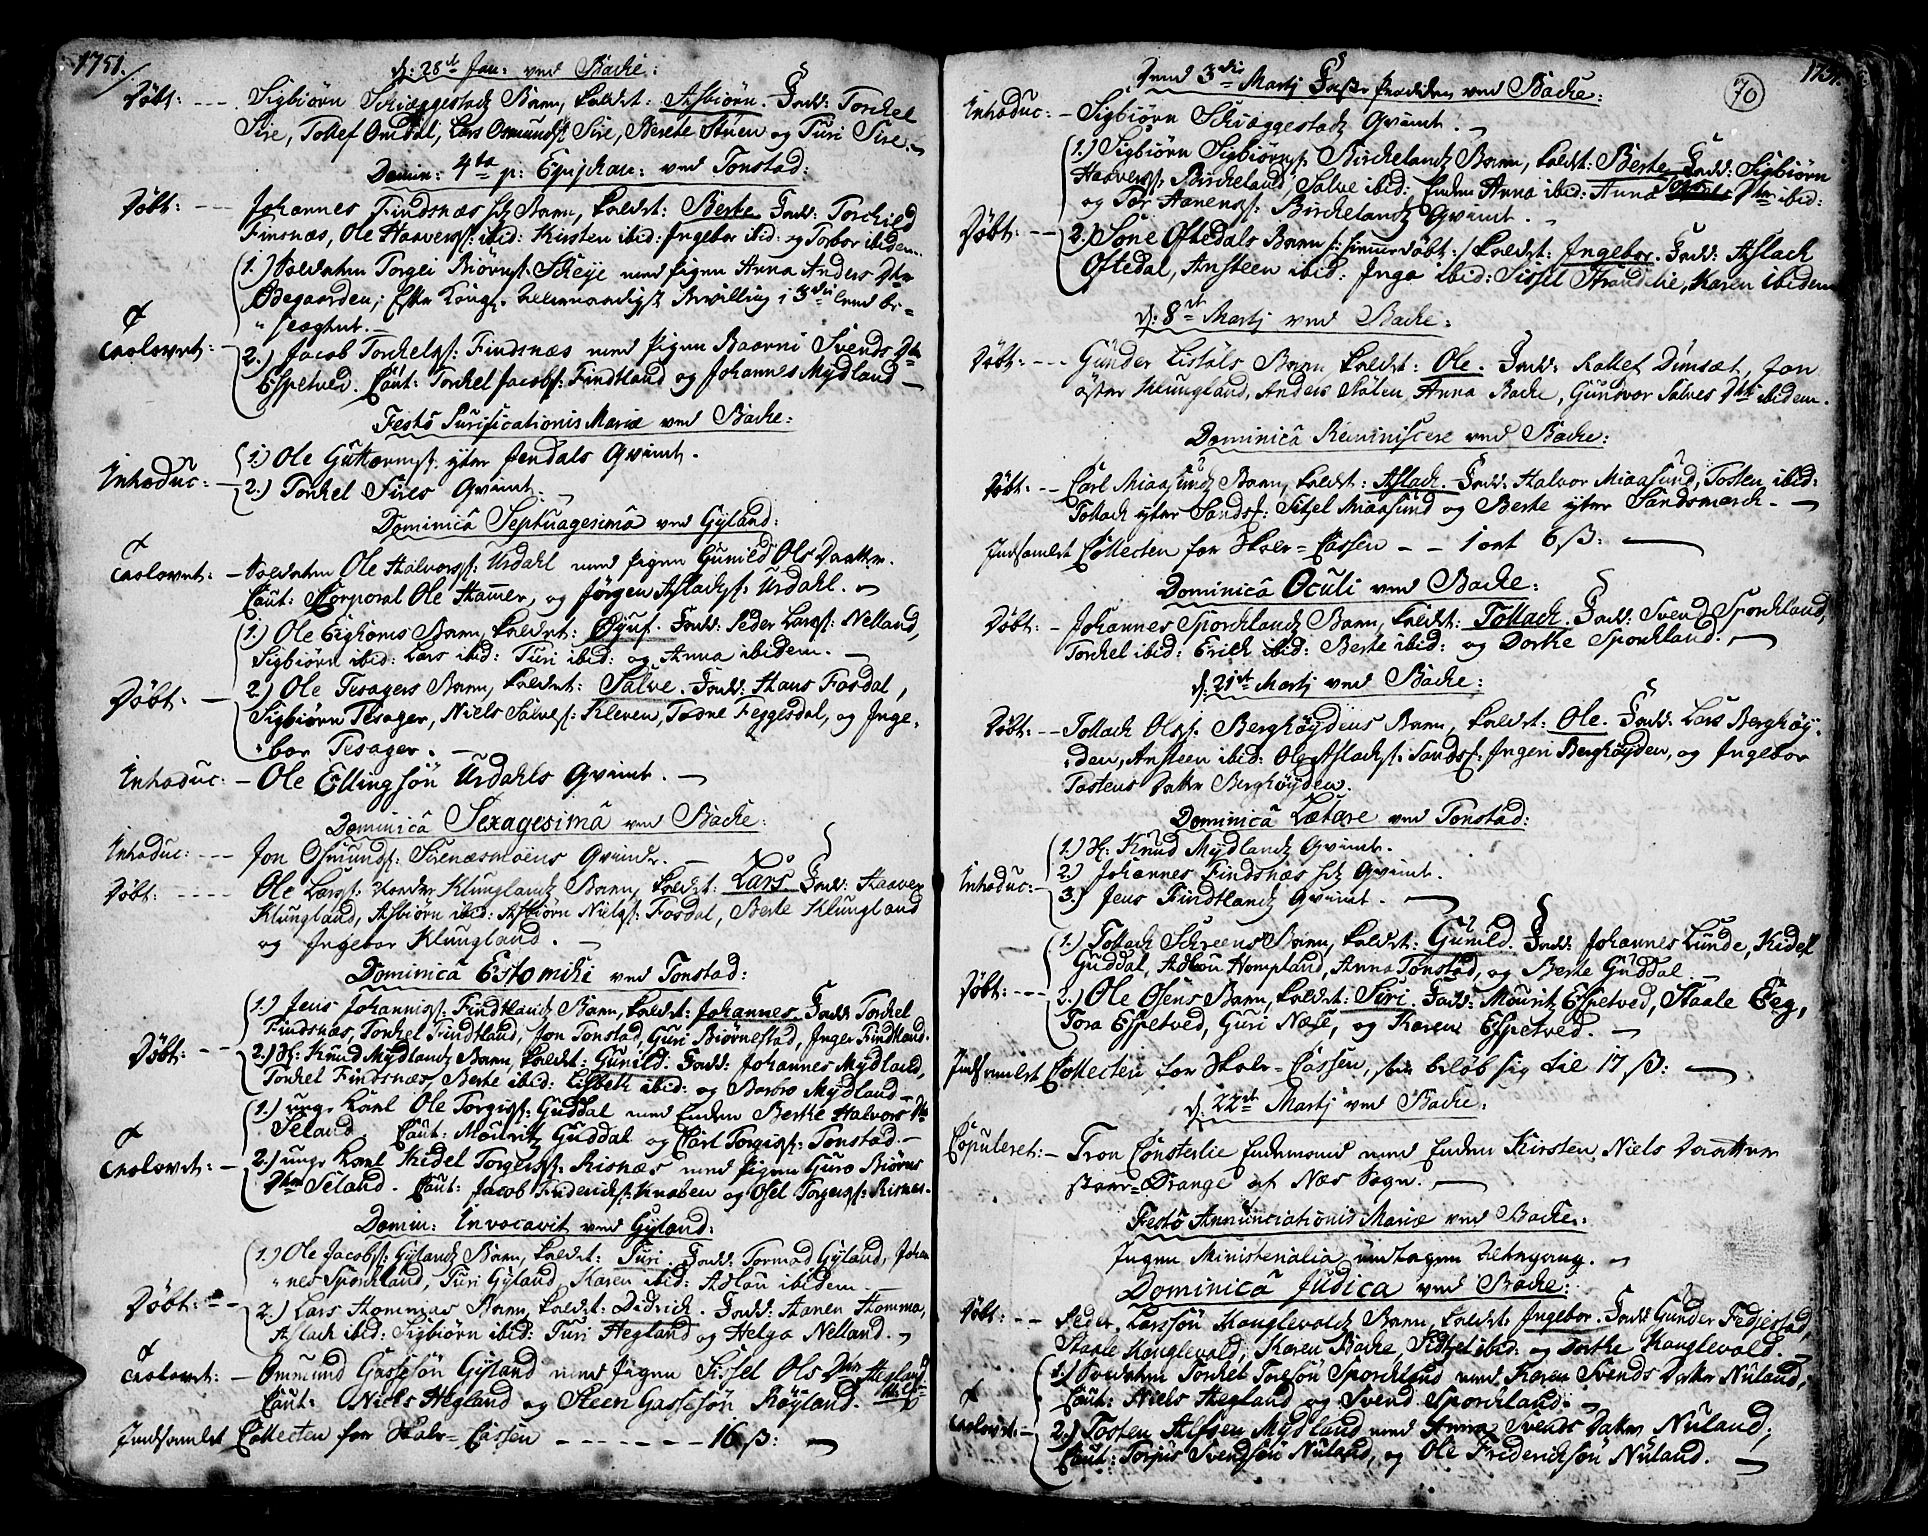 1751.
d: 28de Jan: ved Backe:
Døbt: --- Sigbiørn Schieggestads Barn, kaldet: Asbiørn. Fadd: Torkel
Sire, Tollef Omdal, Lars Osmunds: Sire, Berete Stuen og Turi Sire.
Domin: 4ta p: Epiphan: ved Tonstad:
Døbt: --- Johannes Findsnæs Barn, kaldet: Berte Fadd: Torchild
Finsnæs, Ole Haavers: ibid: Kirsten ibid: Ingebor ibid: og Torbor ibidem.
1.) Soldaten Torgei Biørns: Scheye med Pigen Anna Anders Dtr
Øegaarden; Efter Kongl. allernaadigst Bevilling i 3die Leed be-
slægtet.
Trolovet: - 2.) Jacob Torkels: Findsnæs med Pigen Baarni Svends Dtr
Espetved. Caut: Torkel Jacobs: Findtland og Johannes Mydland
Festô Purificationis Mariæ ved Backe:
1.) Ole Guttorms: yter Jendals Qvinde.
Introduc: - 2.) Torkel Sires Qvinde.
Dominicâ Septuagesimâ ved Gyland:
Trolovet: - Soldaten Ole Halvors: Urdahl med Pigen Gunild Ols Daatter.
Caut: Corporal Ole Hamer, og Jørgen Aslachs: Urdahl.
1.) Ole Eighoms Barn, kaldet: Øyuf. Fadd: Peder Lars: Nelland,
Sigbiørn ibid: Lars ibid: Turi ibid: og Anna ibidem.
Døbt: - 2.) Ole Tesagers Barn, kaldet: Salve. Fadd: Hans Fosdal,
Sigbiørn Tesager, Niels Salves: Kleven, Todne Feggesdal, og Inge-
bor Tesager.
Introduc: - Ole Ellingsøn Urdahls Qvinde.
Dominicâ Sexagesimâ ved Backe:
Introduc: --- Jon Osmunds: Sirenæsmoens Qvinde.
Døbt: ---- Ole Lars: Klunglands Barn, kaldet: Lars. Fadd: Haaver
Klungland, Asbiørn ibid: Asbiørn Niels: Fosdal, Berte Klungland
og Ingebor Klungland.
Dominicâ Estomihi ved Tonstad:
1.) Jens Johannis: Findtlands Barn, kaldet: Johannes. Fadd: Torkel
Findsnæs, Torkel Findtland, Jon Tonstad, Guri Biørnestad, Inger Findtland.
Døbt: -- 2.) H: Knud Mydlands Barn, kaldet: Gunild. Fadd: Johannes Mydland,
Torkel Findsnæs, Berte ibid: Lisbeth ibid: og Barbro Mydland
1.) unge Karl Ole Torgis: Guddal med Enken Berthe Halvors Dtr
Seland. Caut: Mouritz Guddal og Carl Torgis: Tonstad.
Trolovet: - 2.) unge Karl Kidel Torgers: Risnæs med Pigen Guro Biørns
Dtr Seland. Caut: Jacob Friderichs: Knaben og Osel Torgers: Risnes.
Domin: Invocavit ved Gyland:
1.) Ole Jacobs: Gylands Barn, kaldet: Turi. Fadd: Tormod Gyland, Johan-
nes Sporckland, Turi Gyland, Karen ibid: Adlau ibidem
Døbt: -- 2.) Lars Hommas Barn, kaldet: Didrich. Fadd: Hanen Homma,
Aslach ibid: Sigbiørn ibid: Turi Hegland og Helga Nelland.
Trolovet: - Ommund Gassesøn Gyland med Pigen Sissel Ols Dtr Hegland
Caut: Niels Hegland og Steen Gassesøn Røyland.
Indsamlet Collecten for Skole-Cassen ------ 16 ß:
1751.
70
Dend 3die Martj Første Prædiken ved Backe:
Introduc: - Sigbiørn Schieggestads Qvinde.
1.) Sigbiørn Sigbiørns: Birchelands Barn, kaldet: Berte Fadd: Sigbiørn
Haavers: Bircheland, Salve ibid: Enken Anna ibid: Anna Dtr ibid:
og Per Hanens: Birchelands Qvinde.
Døbt: -- 2.) Søne Oftedals Barn /: hiemmedøbt :/ kaldet: Ingebor. Fadd: Aslach
Oftedal, Ansteen ibid: Inga ibid: Sissel Strandelie, Karen ibidem
d: 8de Martj ved Backe:
Døbt: --- Gunder Listøls Barn kaldet: Ole. Fadd: Rollef Dimsæt, Jon
Klungland, Anders Stølen Anna Backe, Gundvor Salves Dtr ibidem.
Dominicâ Reminiscere ved Backe:
Døbt: -- Carl Miaasunds Barn, kaldet: Aslach. Fadd: Halvor Miaasund, Tosten ibid:
Tollach yter Sands: Sitzel Miaasund og Berte yter Sandsmarck.
Indsamlet Collecten for Skole-Cassen -- 1 ort 6 ß:
Dominicâ Oculi ved Backe:
Døbt: - Johannes Sporcklands Barn, kaldet: Tollach. Fadd: Svend Sporckland,
Torkel ibid: Erich ibid: Berte ibid: og Dorthe Sporckland.
d: 21de Martj ved Backe:
Døbt: -- Tollach Ols: Berghøydens Barn, kaldet: Ole. Fadd: Lars Berghøy-
den, Ansteen ibid: Ole Aslachs: Sands: Ingeri Berghøyden, og Ingebor
Tostens Datter Berghøyden.
Dominicâ Lætare ved Tonstad:
1.) H: Knud Mydlands Qvinde.
2.) Johannes Findsnæs Qvinde.
Introduc: - 3.) Jens Findtlands Qvinde.
1.) Tollach Schreens Barn, kaldet: Gunild. Fadd: Johannes Lunde, Kidel
Guddal, Adlou Hompland, Anna Tonstad, og Berte Guddal
Døbt: --- 2.) Ole Osens Barn, kaldet: Siri. Fadd: Mouritz Espetved, Staale Eeg,
Tora Espetved, Guri Næse, og Karen Espetved.
Indsamlet Collecten for Skole-Cassen, beløb sig til 17 ß:
d: 22de Martj ved Backe:
Copuleret: - Tron Consterlie Enkemand med Enken Kirsten Niels Daatter
store-Drange af Næs Sogn.
Festô Annunciationis Mariæ ved Backe:
Ingen Ministerialia undtagen Altergang.
Dominicâ Judica ved Backe:
Døbt: -- Peder Larssøn Hauglevolds Barn, kaldet: Ingebor. Fadd: Gunder Fedjestad,
Staale Hauglevold, Karen Backe, Sidsel ibid: og Dorthe Hauglevold.
1.) Soldaten Torkel Toresøn Sporckland med Karen Svends Datter Nuland;
Caut: Niels Hegland og Svend Sporckland.
Trolovet: - 2.) Tosten Alfsen Mydland med Anna Svends Datter Nuland;
Caut: Torjus Svendsøn Nuland, og Ole Friderichsøn Nuland.